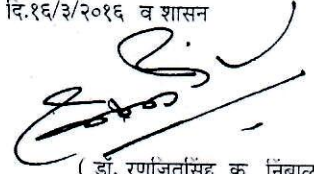 दि.१६/३/२०१६ व शासन
( डॉ. रणजितसिंह क. निंबाल